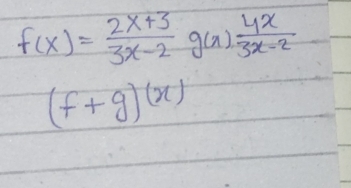 f(x) = (2x+3)/(3x-2) g(x) (4x)/(3x-2)
(f+g)(x)